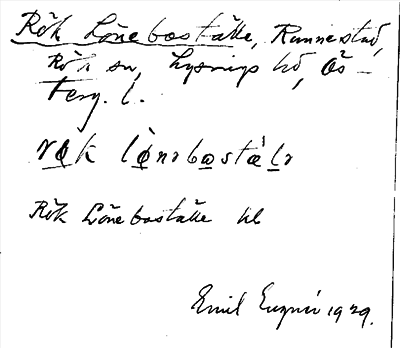 Rök Löneboställe, Runnestad,
Rök sn, Lysings hd, Ös-
terg. l.
rø̱k lø̱̀nəbo̱stæ´ḻə
Rök Löneboställe kl
Emil 1929.